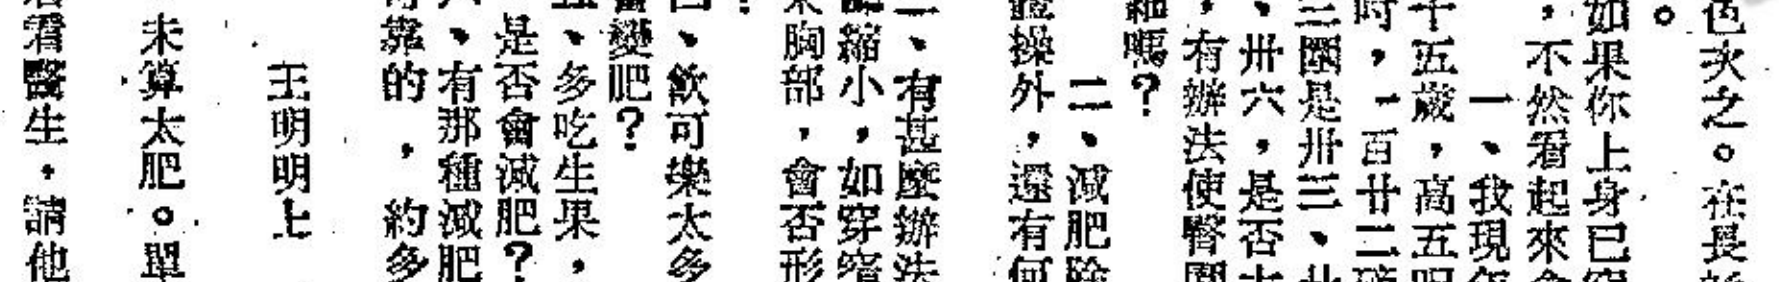 色次之。在長
。
如果你上身已穿
,不然看起來會
一、我現年
十五歲,高五呎
時,一百廿二磅
三圍是卅三、廿
、卅六,是否太
,有辦法使臀圍
細嗎?
二、減肥除
體操外,還有何
三、有甚麼辦法
縮小,如穿窄
胸部,會否形
?
四、飲可樂太多
會變肥?
五、多吃生果,
是否會減肥?
六、有那種減肥
靠的,約多
王明明上
未算太肥。單
看醫生,請他